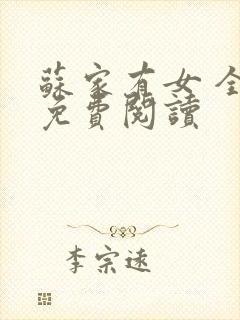 蘇家有女 全
免費閱讀
李宗遠